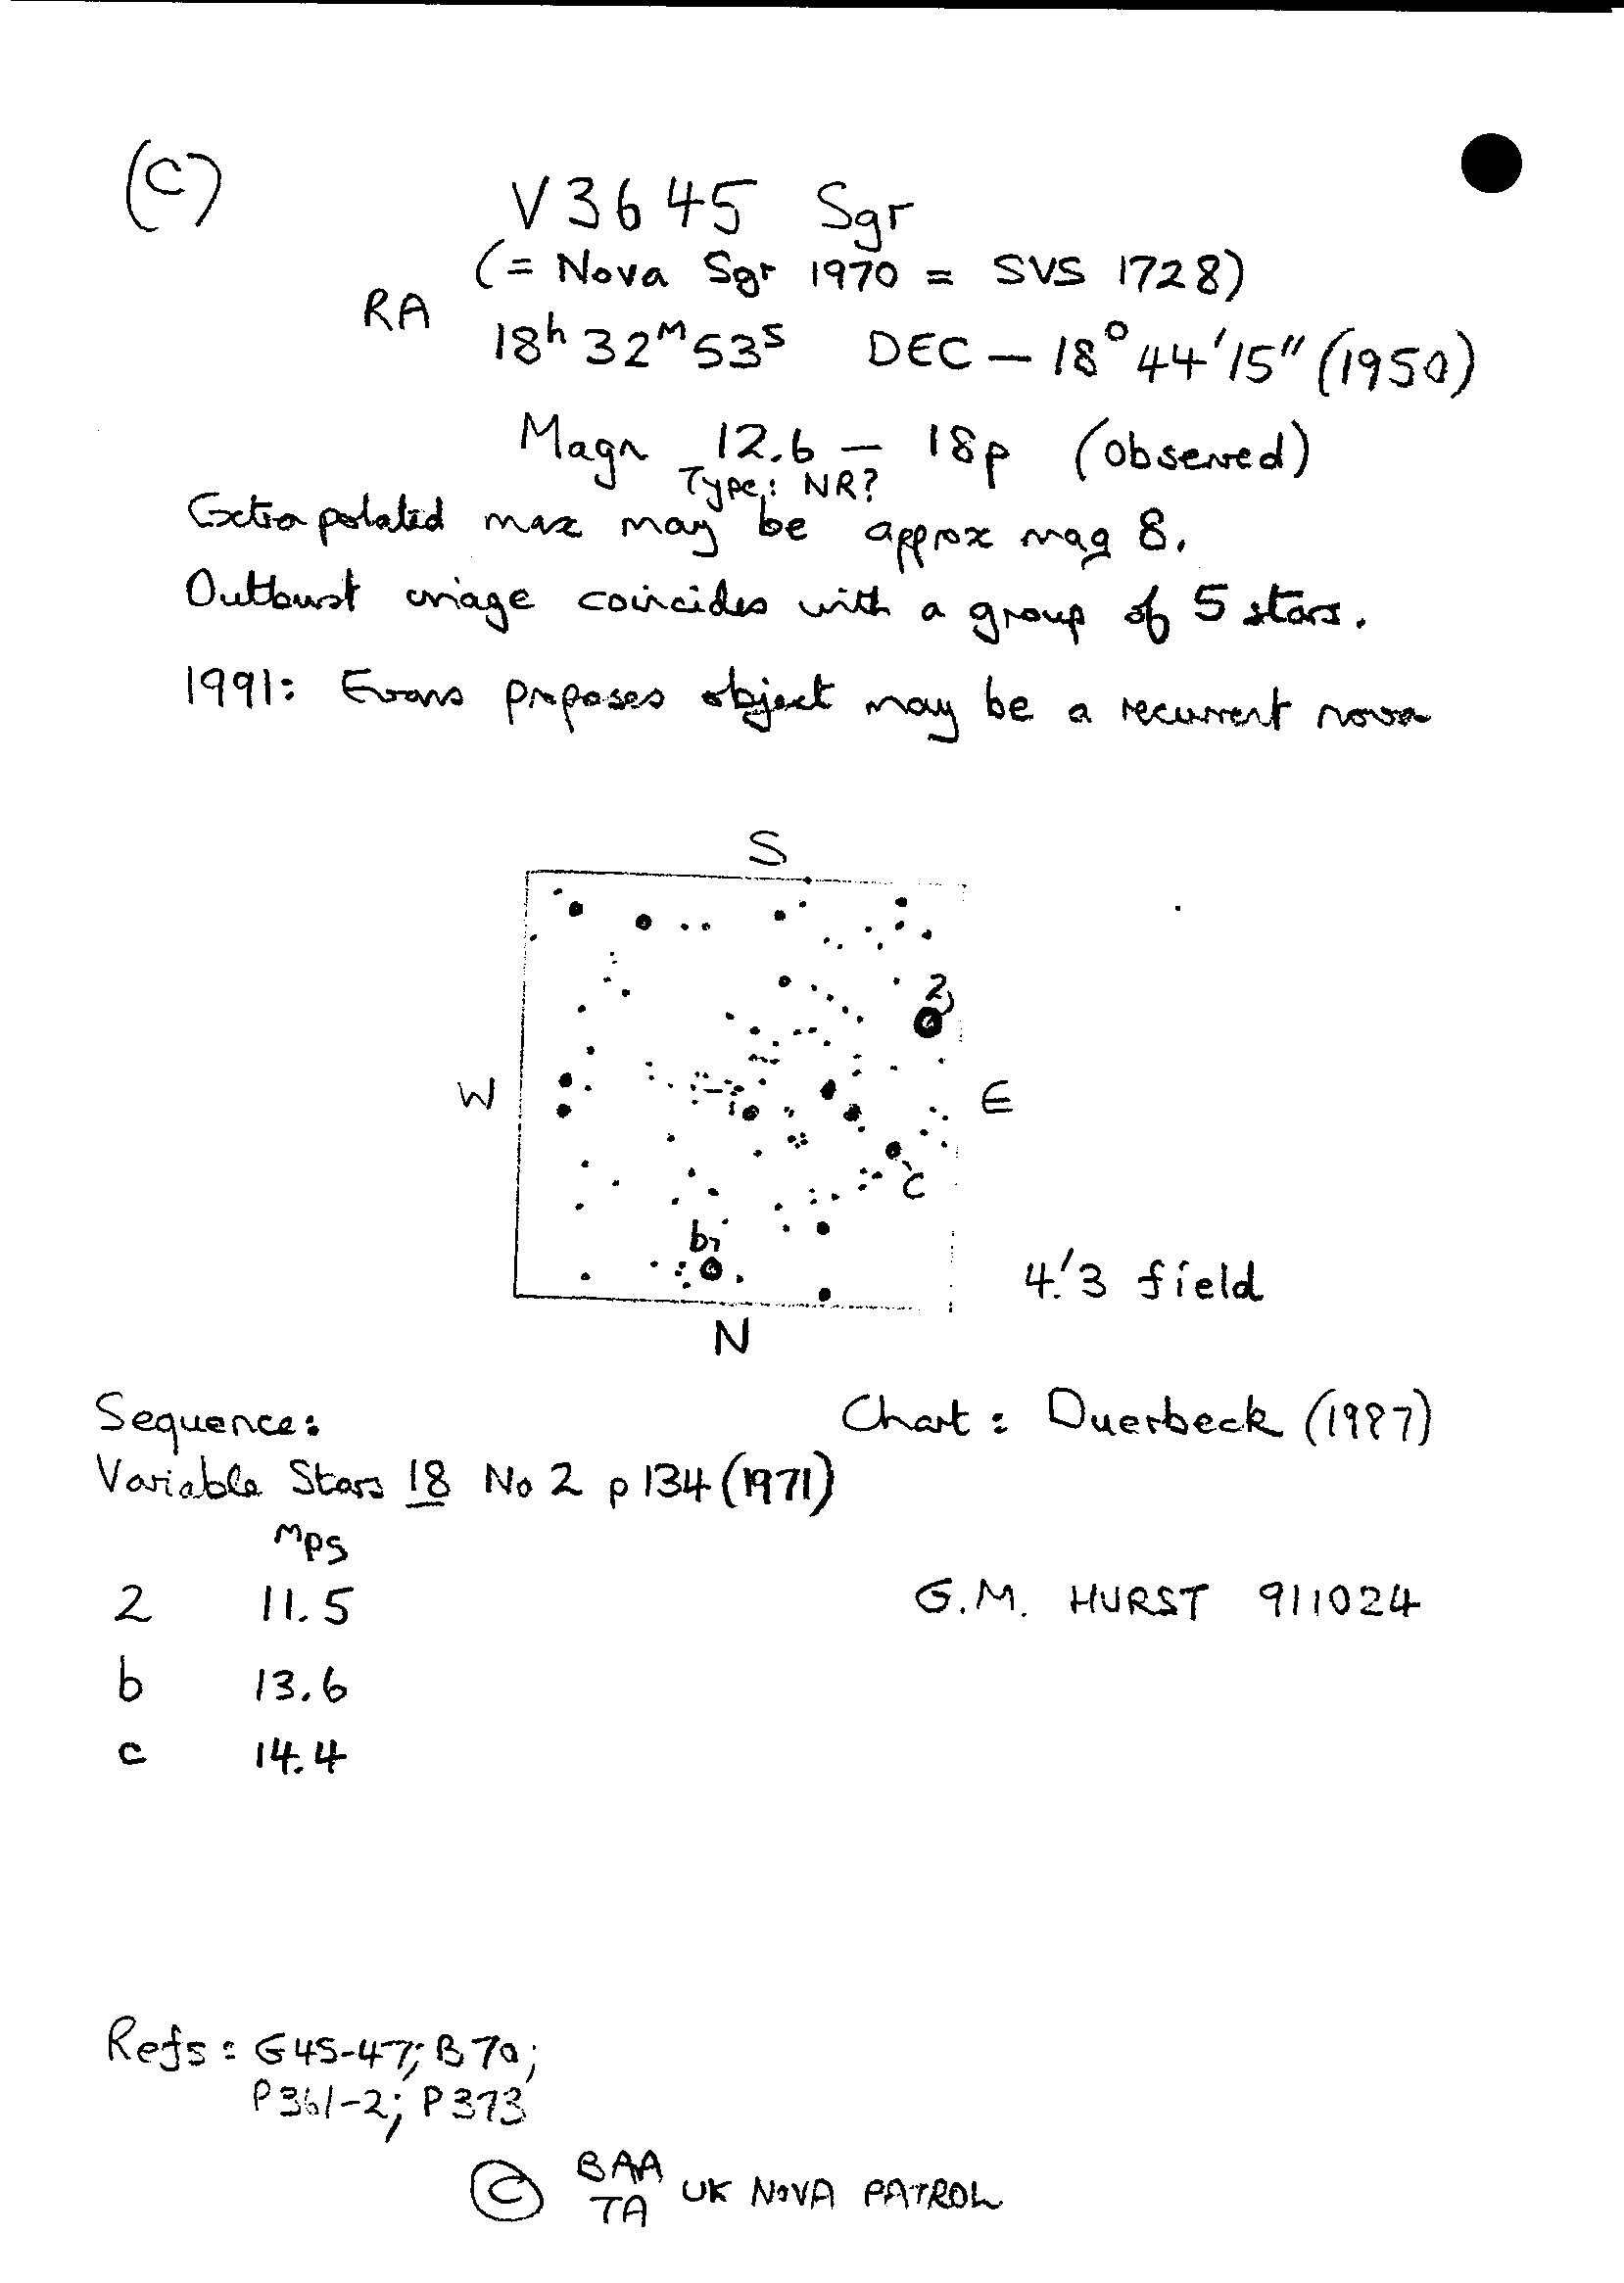 (C)
V3645 Sgr
(= Nova Sgr 1970 = SVS 1728)
RA 18h 32m 53s DEC - 18° 44' 15" (1950)
Magn 12.6 - 18p (observed)
Type: NR?
Extrapolated max may be approx mag 8.
Outburst image coincides with a group of 5 stars.
1991: Evans proposes object may be a recurrent nova
S
2
W
E
C
b
N
4.'3 field
Sequence:
Chart: Duerbeck (1987)
Variable Stars 18 No 2 p 134 (1971)
mps
2 11.5
G.M. HURST 911024
b 13.6
c 14.4
Refs: G45-47; B70;
P361-2; P373
© BAA
TA UK NOVA PATROL